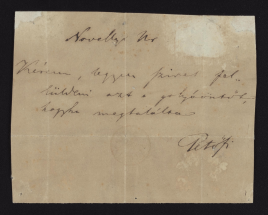 Novelly Ur
Kérem, legyen szives fel-
küldeni ezt a
hogyha megtalálom
Petőfi